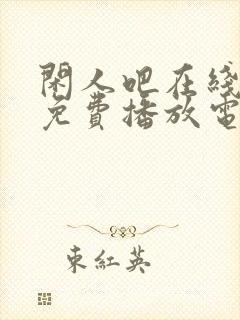 閑人吧在綫
免費播放電
東紅英